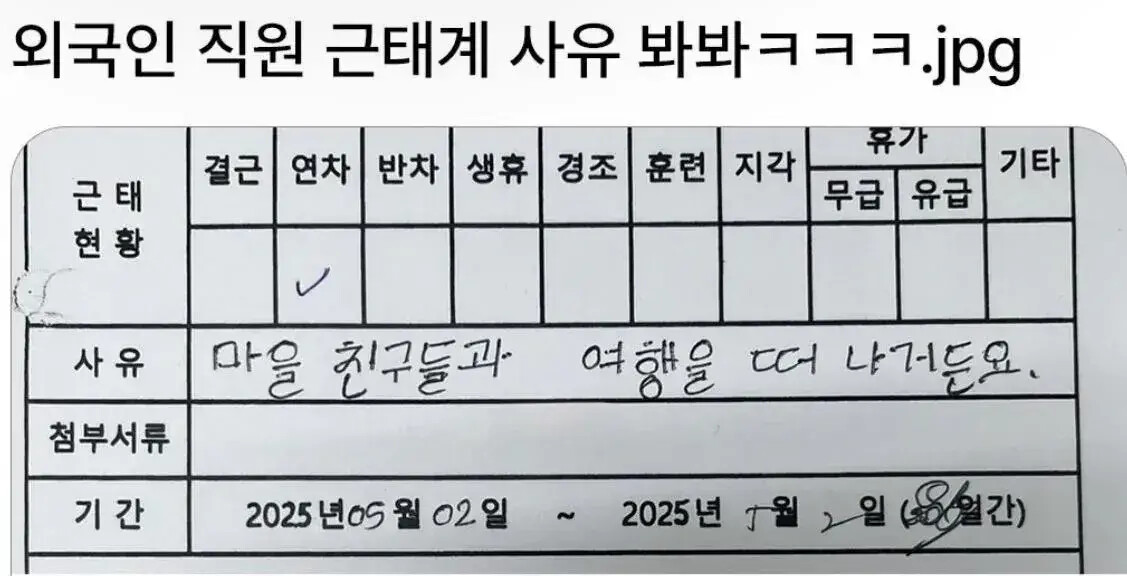 외국인 직원 근태계 사유 봐봐ㅋㅋㅋ.jpg
근 태
현 황
결근 연차 반차 생휴 경조 훈련 지각 휴가 기타
무급 유급
✓
사 유 마을 친구들과 여행을 떠 나거든요.
첨부서류
기 간 2025년 05월 02일 ~ 2025년 5월 2일 ( 일간)